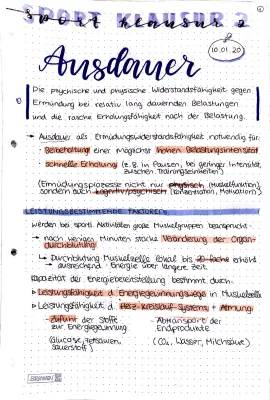 SPORT KLAUSUR 2
10.01.20
Ausdauer
Die psychische und physische Widerstandsfähigkeit gegen
Ermüdung bei relativ lang dauernden Belastungen
und die rasche Erholungsfähigkeit nach der Belastung.
→ Ausdauer als Ermüdungswiderstandsfähigkeit notwendig für:
Beibehaltung einer möglichst hohen Belastungsintensität
schnelle Erholung (z.B. in Pausen, bei geringer Intensität,
zwischen Trainingseinheiten)
(Ermüdungsprozesse nicht nur physisch (Muskelfunktion),
sondern auch kognitiv/psychisch (Konzentration, Motivation))
LEISTUNGSBESTIMMENDE FAKTOREN
werden bei sportl. Aktivitäten große Muskelgruppen beansprucht:
→ nach wenigen Minuten starke Veränderung der Organ-
durchblutung
↳ Durchblutung Muskelzelle lokal bis 20-fache erhöht
ausreichend Energie über längere Zeit
Kapazität der Energiebereitstellung bestimmt durch:
▸ Leistungsfähigkeit d. Energiegewinnungswege in Muskelzelle
▸ Leistungsfähigkeit d. Herz-Kreislauf-Systems + Atmung
Zufuhr der Stoffe
zur Energiegewinnung
(Glucose, Fettsäuren,
Sauerstoff)
Abtransport der
Endprodukte
(CO₂, Wasser, Milchsäure)